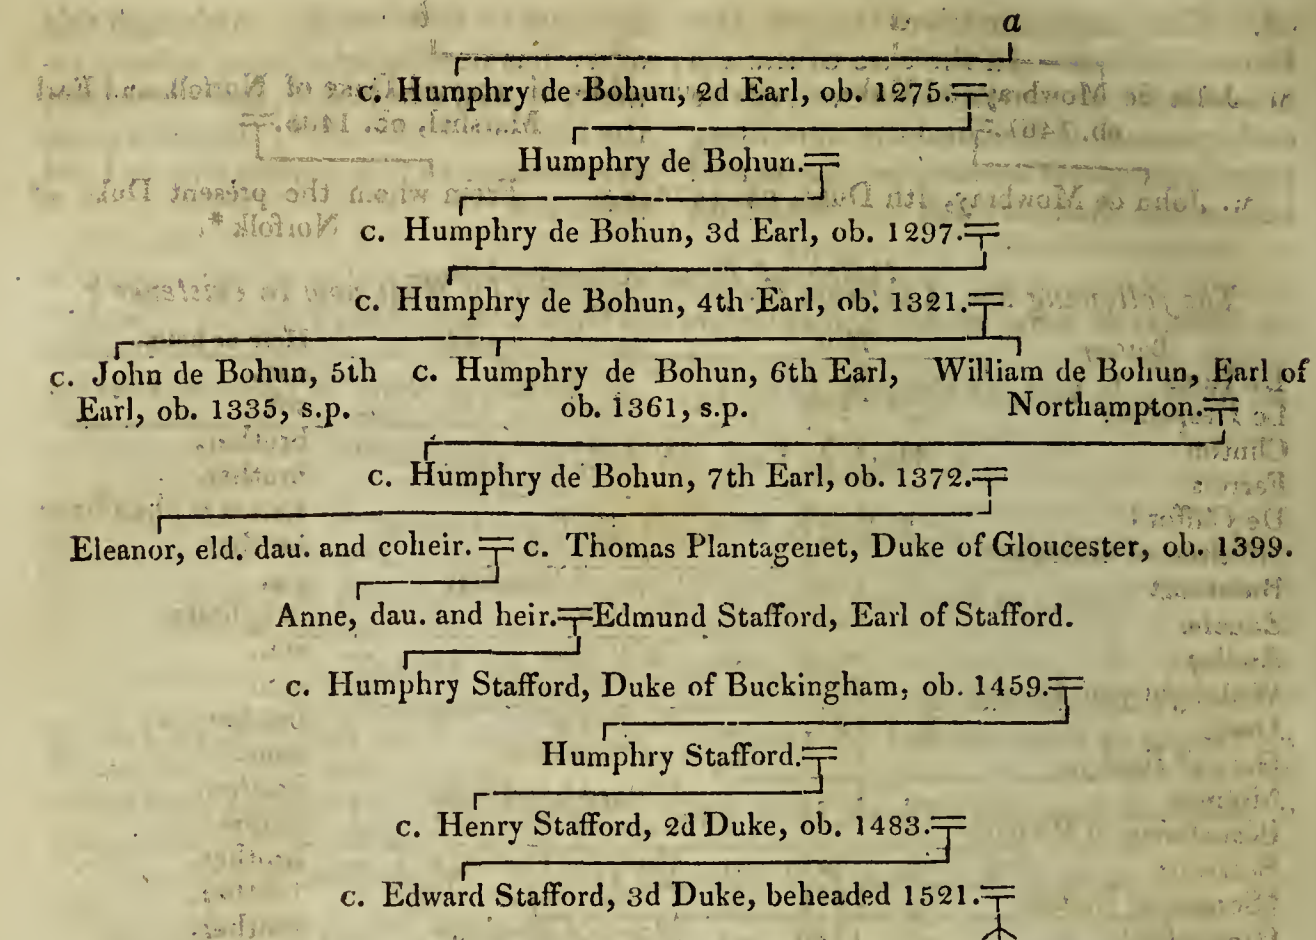 a
c. Humphry de Bohun, 2d Earl, ob. 1275.
Humphry de Bohun.
c. Humphry de Bohun, 3d Earl, ob. 1297.
c. Humphry de Bohun, 4th Earl, ob. 1321.
c. John de Bohun, 5th
Earl, ob. 1335, s.p.
c. Humphry de Bohun, 6th Earl,
ob. 1361, s.p.
William de Bohun, Earl of
Northampton.
c. Humphry de Bohun, 7th Earl, ob. 1372.
Eleanor, eld. dau. and coheir. c. Thomas Plantagenet, Duke of Gloucester, ob. 1399.
Anne, dau. and heir. Edmund Stafford, Earl of Stafford.
c. Humphry Stafford, Duke of Buckingham, ob. 1459.
Humphry Stafford.
c. Henry Stafford, 2d Duke, ob. 1483.
c. Edward Stafford, 3d Duke, beheaded 1521.